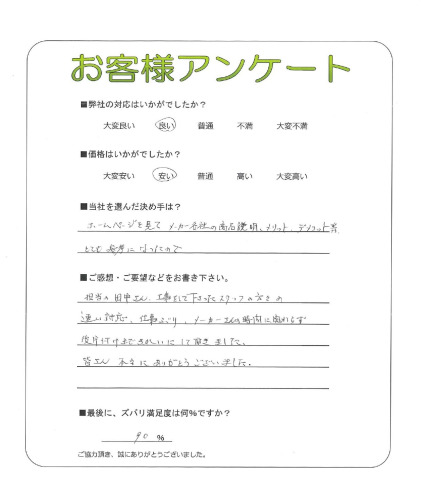 お客様アンケート
■弊社の対応はいかがでしたか？
大変良い 良い 普通 不満 大変不満
■価格はいかがでしたか？
大変安い 安い 普通 高い 大変高い
■当社を選んだ決め手は？
ホームページを見て メーカー各社の商品説明、メリット、デメリット等
とても参考になったので
■ご感想・ご要望などをお書き下さい。
担当の田中さん、工事をして下さったスタッフの方々の
速い対応、仕事ぶり、メーカーさんの時間に関わらず
後片付けまできれいにして頂きまして、
皆さん 本当にありがとうございました。
■最後に、ズバリ満足度は何%ですか？
90 %
ご協力頂き、誠にありがとうございました。